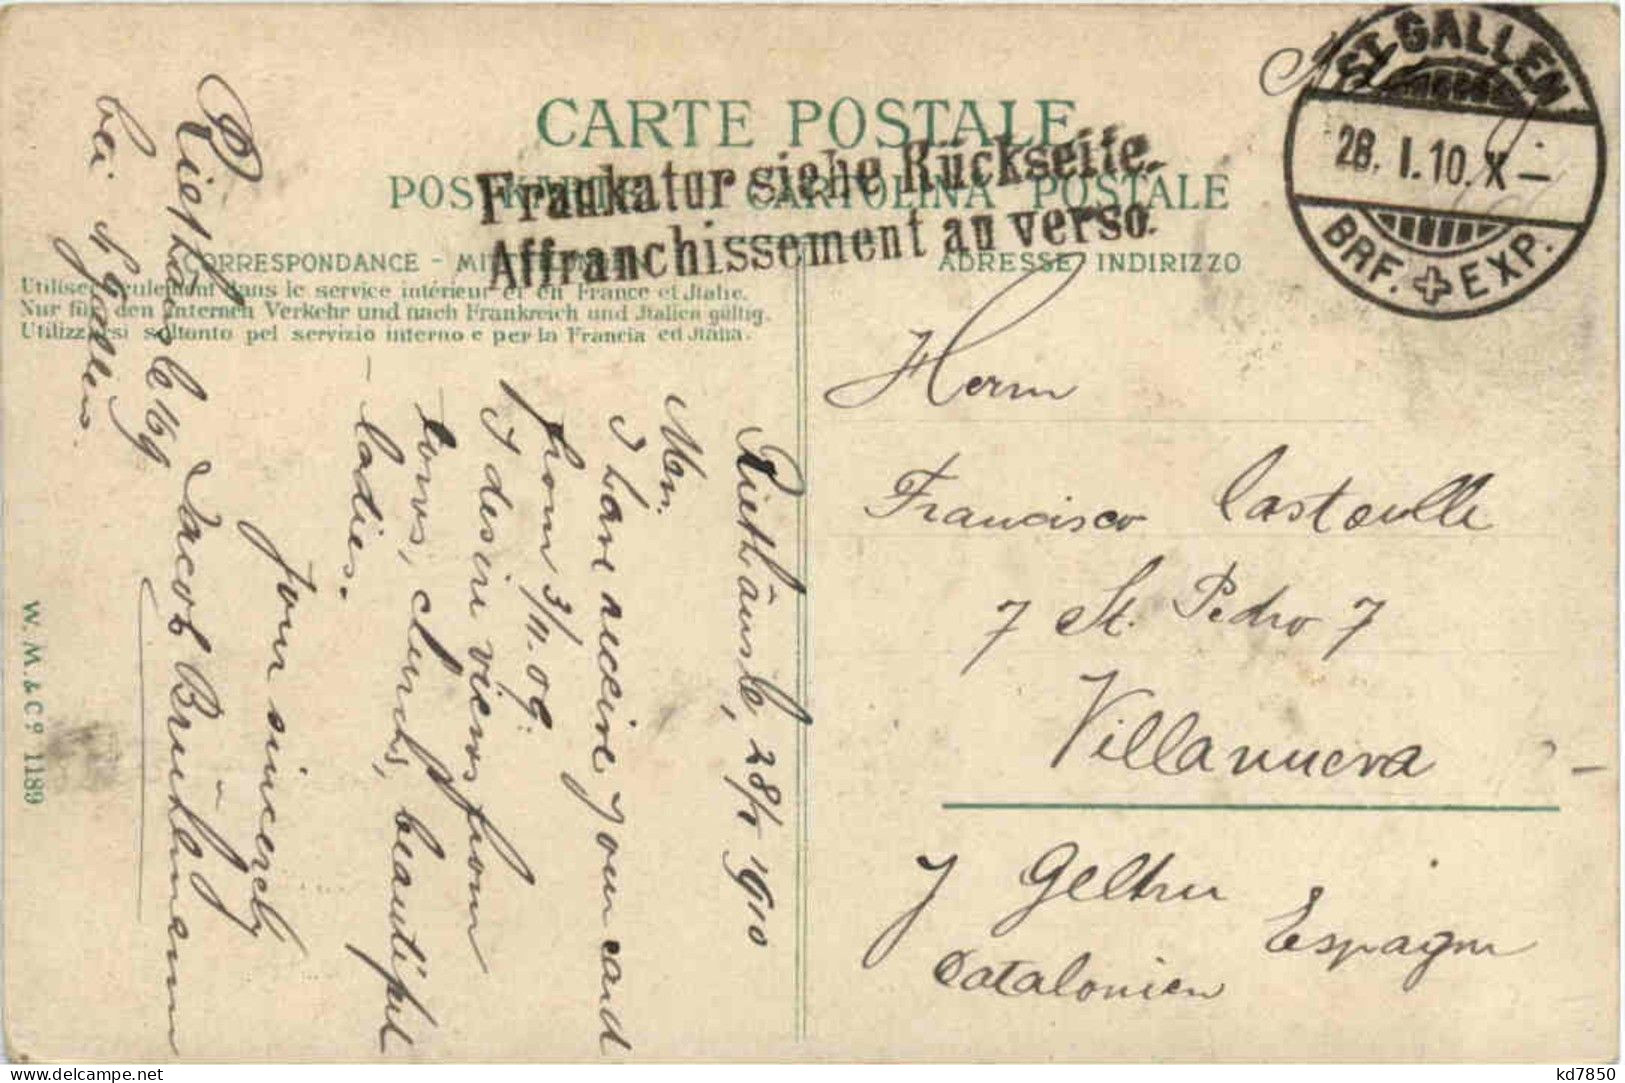 CARTE POSTALE
POSTKARTE CARTOLINA POSTALE
Frankatur siehe Rückseite.
Affranchissement au verso.
ST. GALLEN
28. I. 10. X —
BRF. + EXP.
CORRESPONDANCE - MITTEILUNGEN
ADRESSE INDIRIZZO
Utiliser seulement dans le service intérieur et en France et Italie.
Nur für den internen Verkehr und nach Frankreich und Italien gültig.
Utilizzarsi soltanto pel servizio interno e per la Francia ed Italia.
Riethäusle, 28/I 1910
I have receive your card
from 3/11. 09.
I desire views from
towns, church, beautiful
ladies.
Your sincerely
Jacob Brühlmann
Riethäusle
bei St. Gallen
Herrn
Francisco
7 St. Pedro 7
Villanueva
y Geltru
Espagne
Catalonien
W. M. & Cº 1189
kd7850